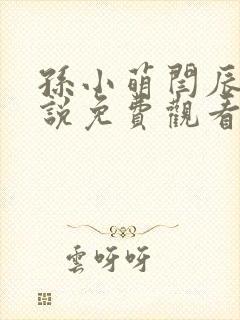 孫小萌閆辰
說免費觀看
雲呀呀